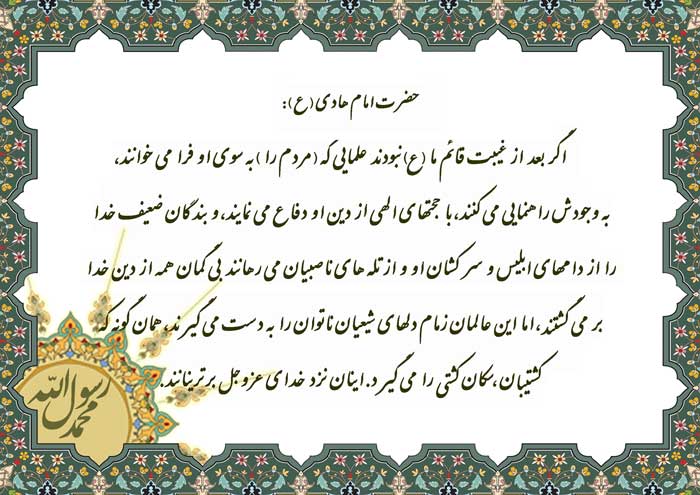 حضرت امام هادی (ع):
اگر بعد از غیبت قائم ما (ع) نبودند علمایی که (مردم را) به سوی او فرا می خوانند،
به وجودش راهنمایی می کنند، با حجتهای الهی از دین او دفاع می نمایند، و بندگان ضعیف خدا
را از دامهای ابلیس و سرکشان او و از تله های ناصبیان می رهانند بی گمان همه از دین خدا
بر می گشتند، اما این عالمان زمام دلهای شیعیان ناتوان را به دست می گیرند، همان گونه که
کشتیبان، سکان کشتی را می گیرد. اینان نزد خدای عزوجل برترینانند.
محمد رسول الله